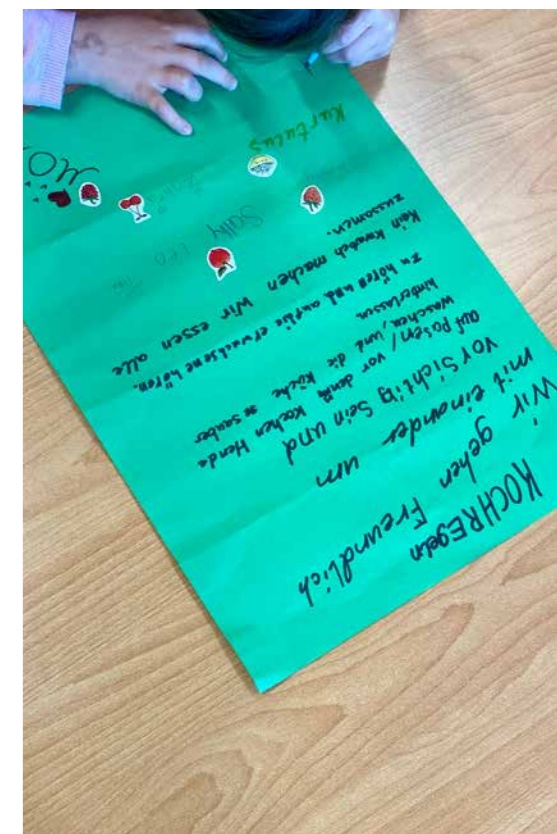 KOCHREgeln
Wir gehen Freundlich
mit einander um
vorsichtig sein und
auf pasen / vor dem Kochen Hende
waschen, und die Küche so sauber
hinterlassen.
zu hören und auf die erwachsene hören.
kein kwatsch machen Wir essen alle
zussamen.
Sally Leo
Kurtulus